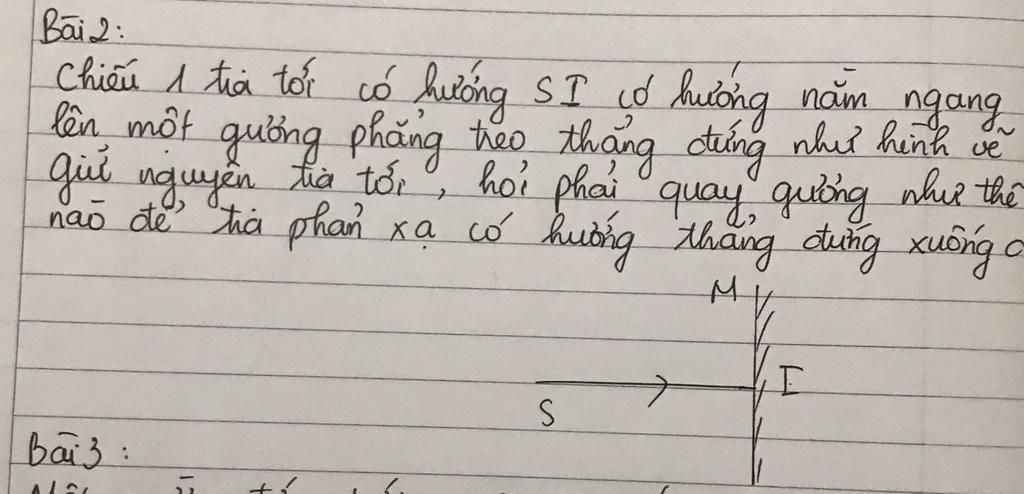 Bài 2:
Chiếu 1 tia tới có hướng SI có hướng nằm ngang
lên một gương phẳng treo thẳng đứng như hình vẽ
giữ nguyên tia tới, hỏi phải quay gương như thế
nào để tia phản xạ có hướng thẳng đứng xuống
M
I
S
Bài 3: